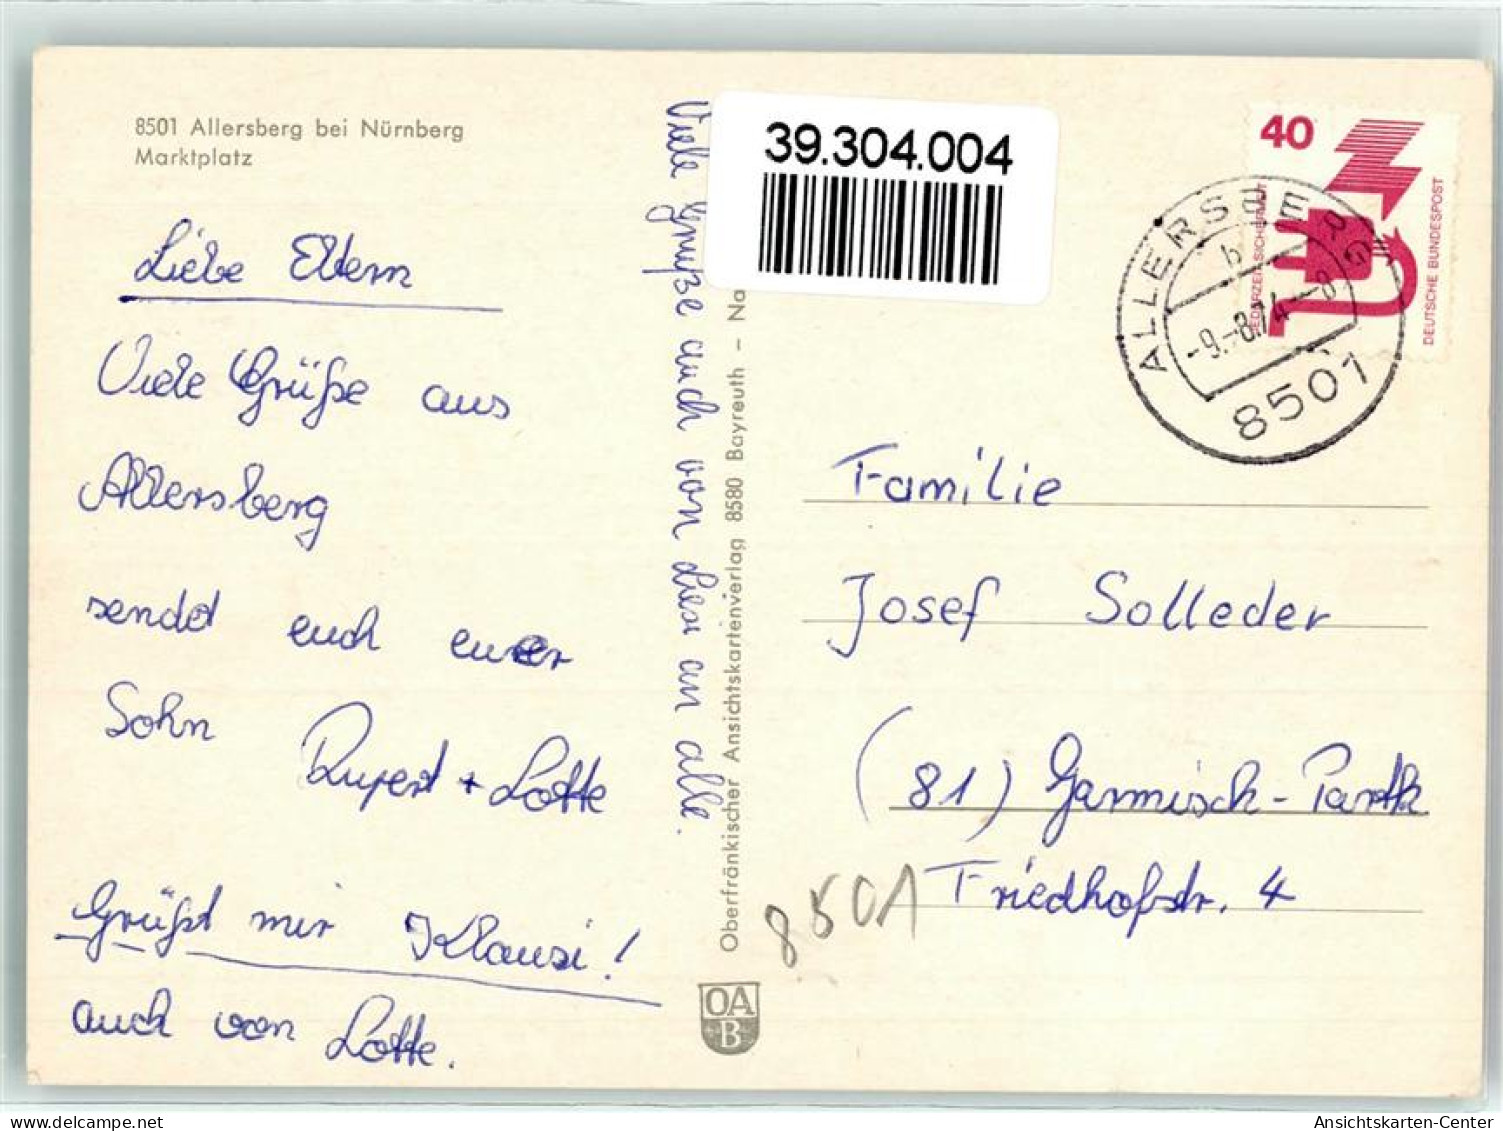 8501 Allersberg bei Nürnberg
Marktplatz
Liebe Eltern
Viele Grüße aus
Allersberg
sendet euch euer
Sohn Rupert + Lotte
Grüßt mir Klausi!
auch von Lotte.
Viele Grüße auch von Liesi an alle.
Oberfränkischer Ansichtskartenverlag 8580 Bayreuth – Na
OA
B
39.304.004
40
JEDERZEIT SICHERHEIT
DEUTSCHE BUNDESPOST
ALLERSBERG
b
-9.-8.74--8
8501
Familie
Josef Solleder
(81) Garmisch-Partk
Friedhofstr. 4
8501
Ansichtskarten-Center